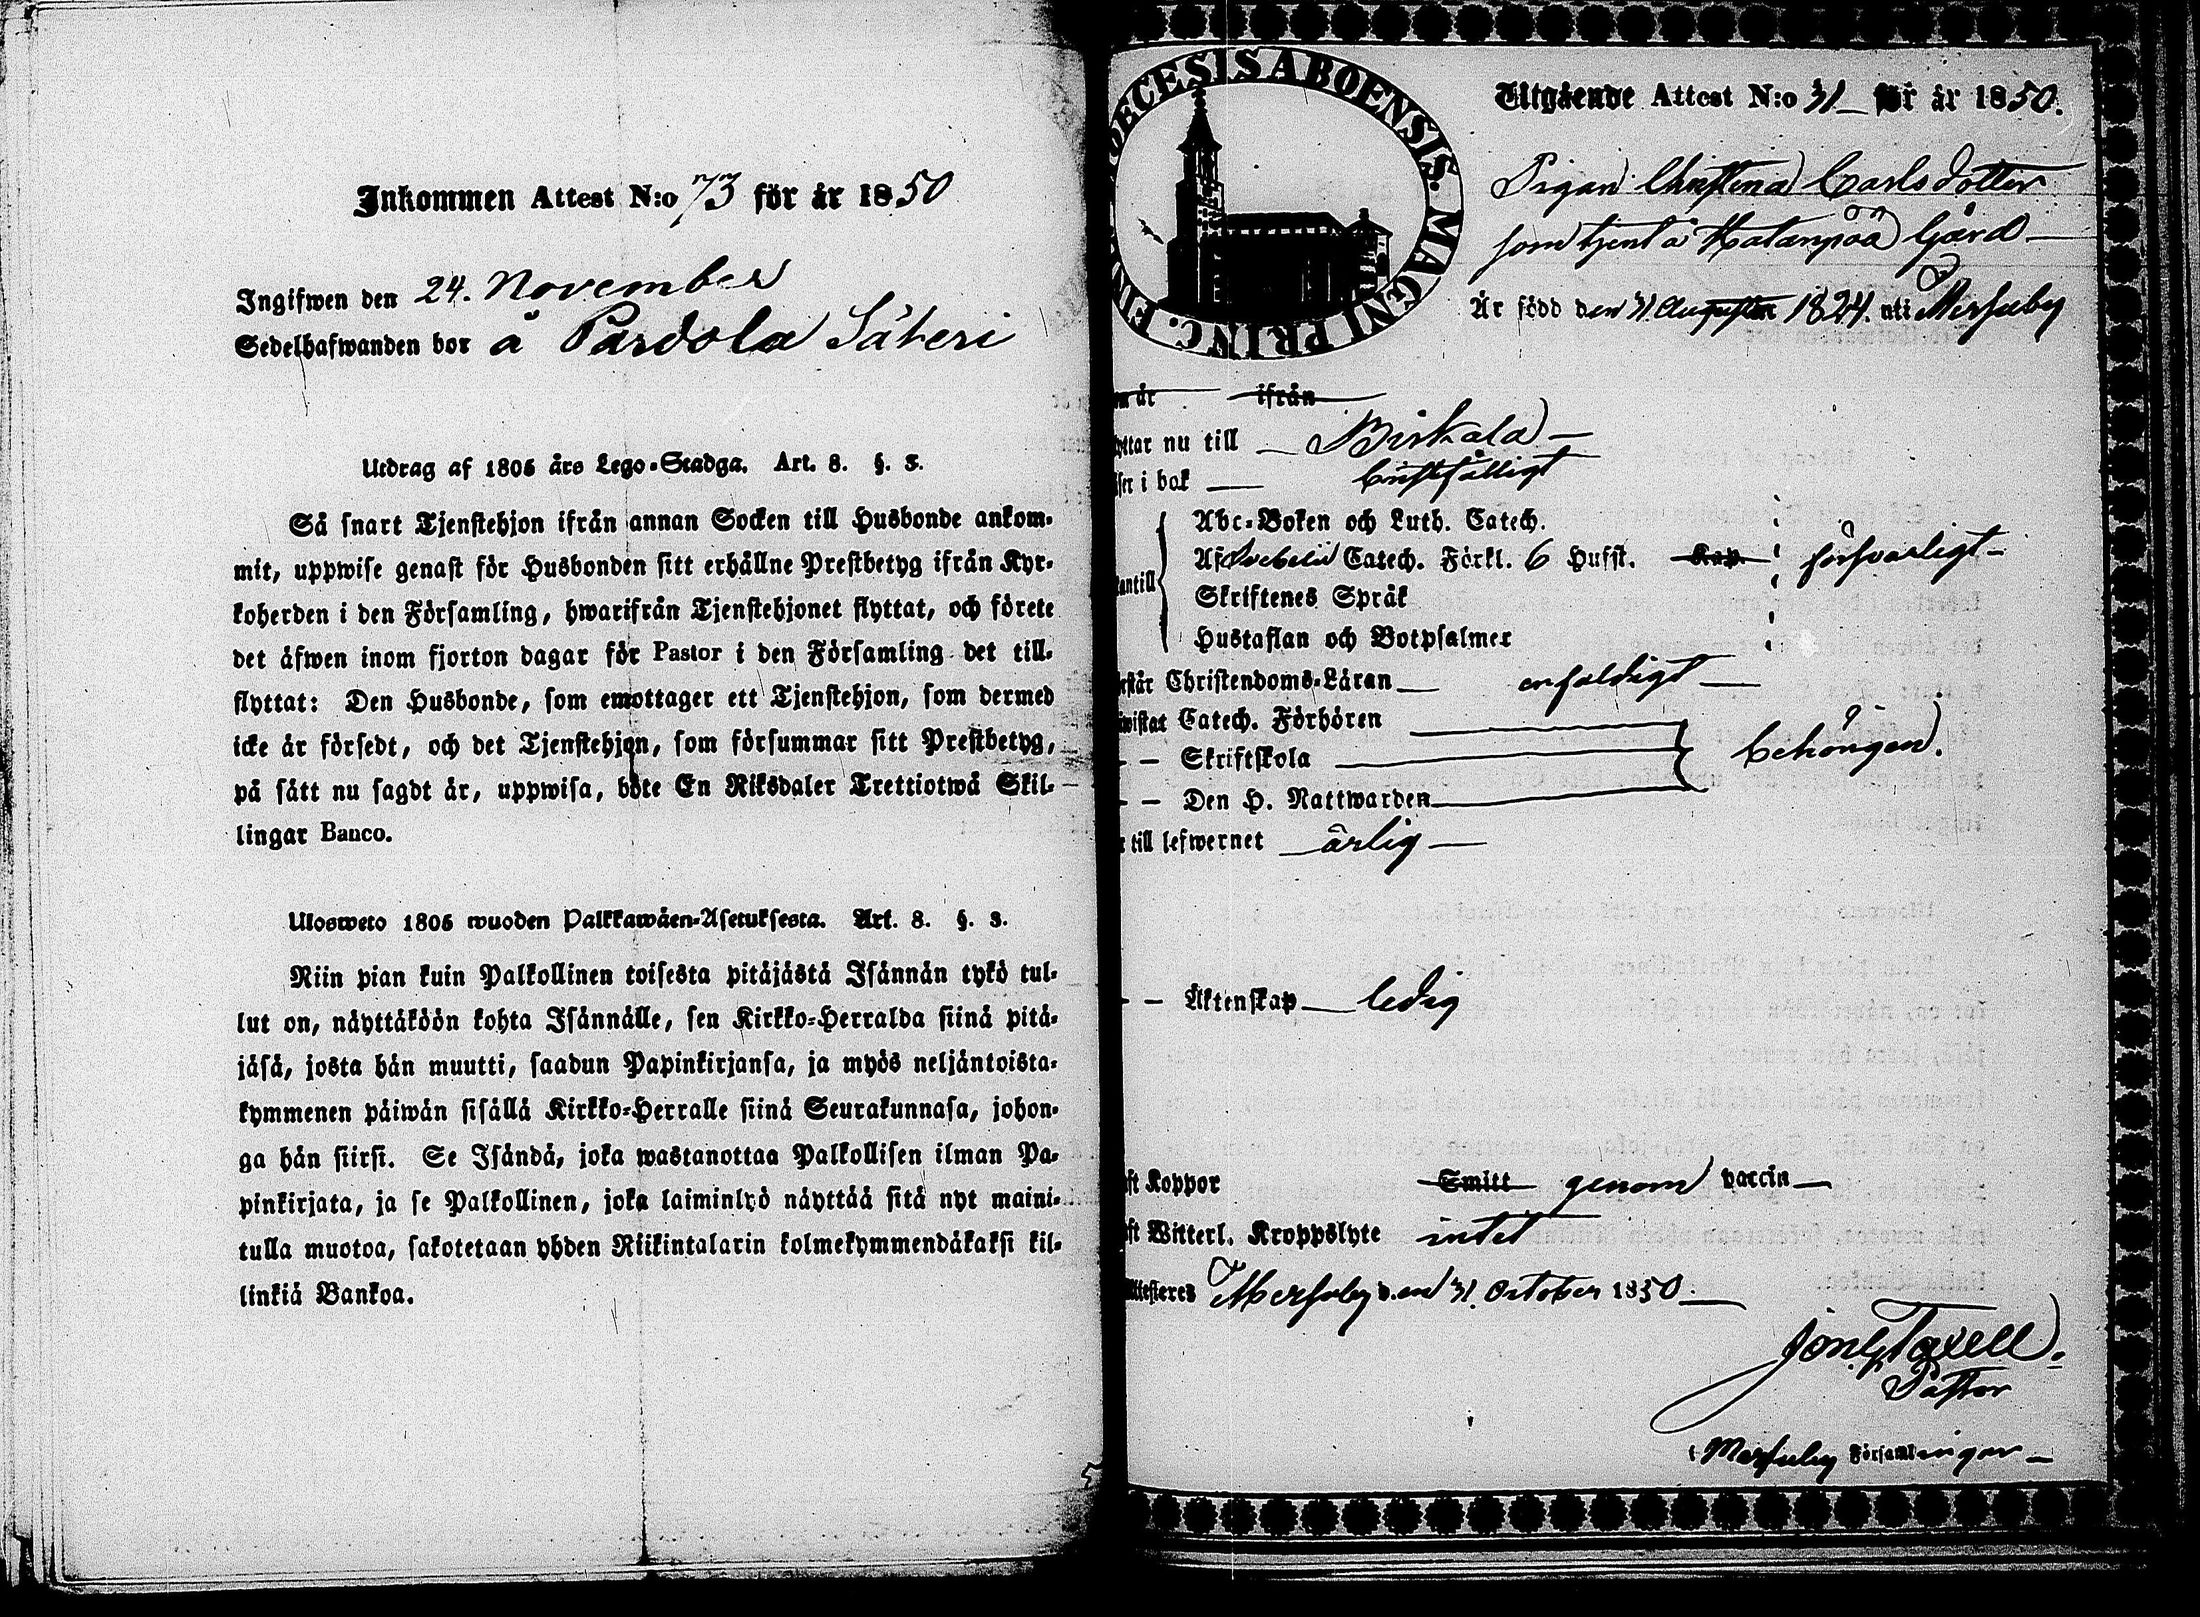 Inkommen Attest N:o 73 för år 1850
Ingifwen den 24. November
Sedelhafwanden bor å Pardola Säteri
Utdrag af 1805 års Lego-Stadga. Art. 8. §. 3.
Så snart Tjenstehjon ifrån annan Socken till Husbonde ankom-
mit, uppwise genast för Husbonden sitt erhållne Prestbetyg ifrån Kyr-
koherden i den Församling, hwarifrån Tjenstehjonet flyttat, och förete
det äfwen inom fjorton dagar för Pastor i den Församling det till-
flyttat: Den Husbonde, som emottager ett Tjenstehjon, som dermed
icke är försedt, och det Tjenstehjon, som försummar sitt Prestbetyg,
på sätt nu sagdt är, uppwisa, böte En Riksdaler Trettiotwå Skil-
lingar Banco.
Ulosweto 1805 wuoden Palkkawäen-Asetuksesta. Art. 8. §. 3.
Niin pian kuin Palkollinen toisesta pitäjästä Isännän tykö tul-
lut on, näyttäköön kohta Isännälle, sen Kirkko-Herralda siinä pitä-
jäsä, josta hän muutti, saadun Papinkirjansa, ja myös neljäntoista-
kymmenen päiwän sisällä Kirkko-Herralle siinä Seurakunnasa, johon-
ga hän siirsi. Se Isändä, joka wastanottaa Palkollisen ilman Pa-
pinkirjata, ja se Palkollinen, joka laiminlyö näyttää sitä nyt maini-
tulla muotoa, sakotetaan yhden Riikintalarin kolmekymmendäkaksi kil-
linkiä Bankoa.
ECESIS ABOENSIS. MAGNI PRINC. FIN
Utgående Attest N:o 31 för år 1850.
Pigan Christina Carlsdotter
som tjent å Katanpää Gård
Är född den 31 Augusti 1824. uti Merfuby
om år ifrån
yttar nu till Birkala
ser i bok Christfälligt
antill
Abc-Boken och Luth. Catech.
Af Svebelii Catech. Förkl. 6 Hufst. Kap. försvarligt
Skriftenes Språk
Hustaflan och Botpsalmer
rstår Christendoms-Läran enfaldigt
wistat Catech. Förhören
- - Skriftskola behörigen.
- - Den H. Nattwarden
r till lefwernet ärlig
- - Äktenskap ledig
ft Koppor Smitt genom vaccin
ft Witterl. Kroppslyte intet
Attesteres Merfuby den 31 October 1850.
Jon. G. Taxell.
Pastor
i Merfuby Församlingar